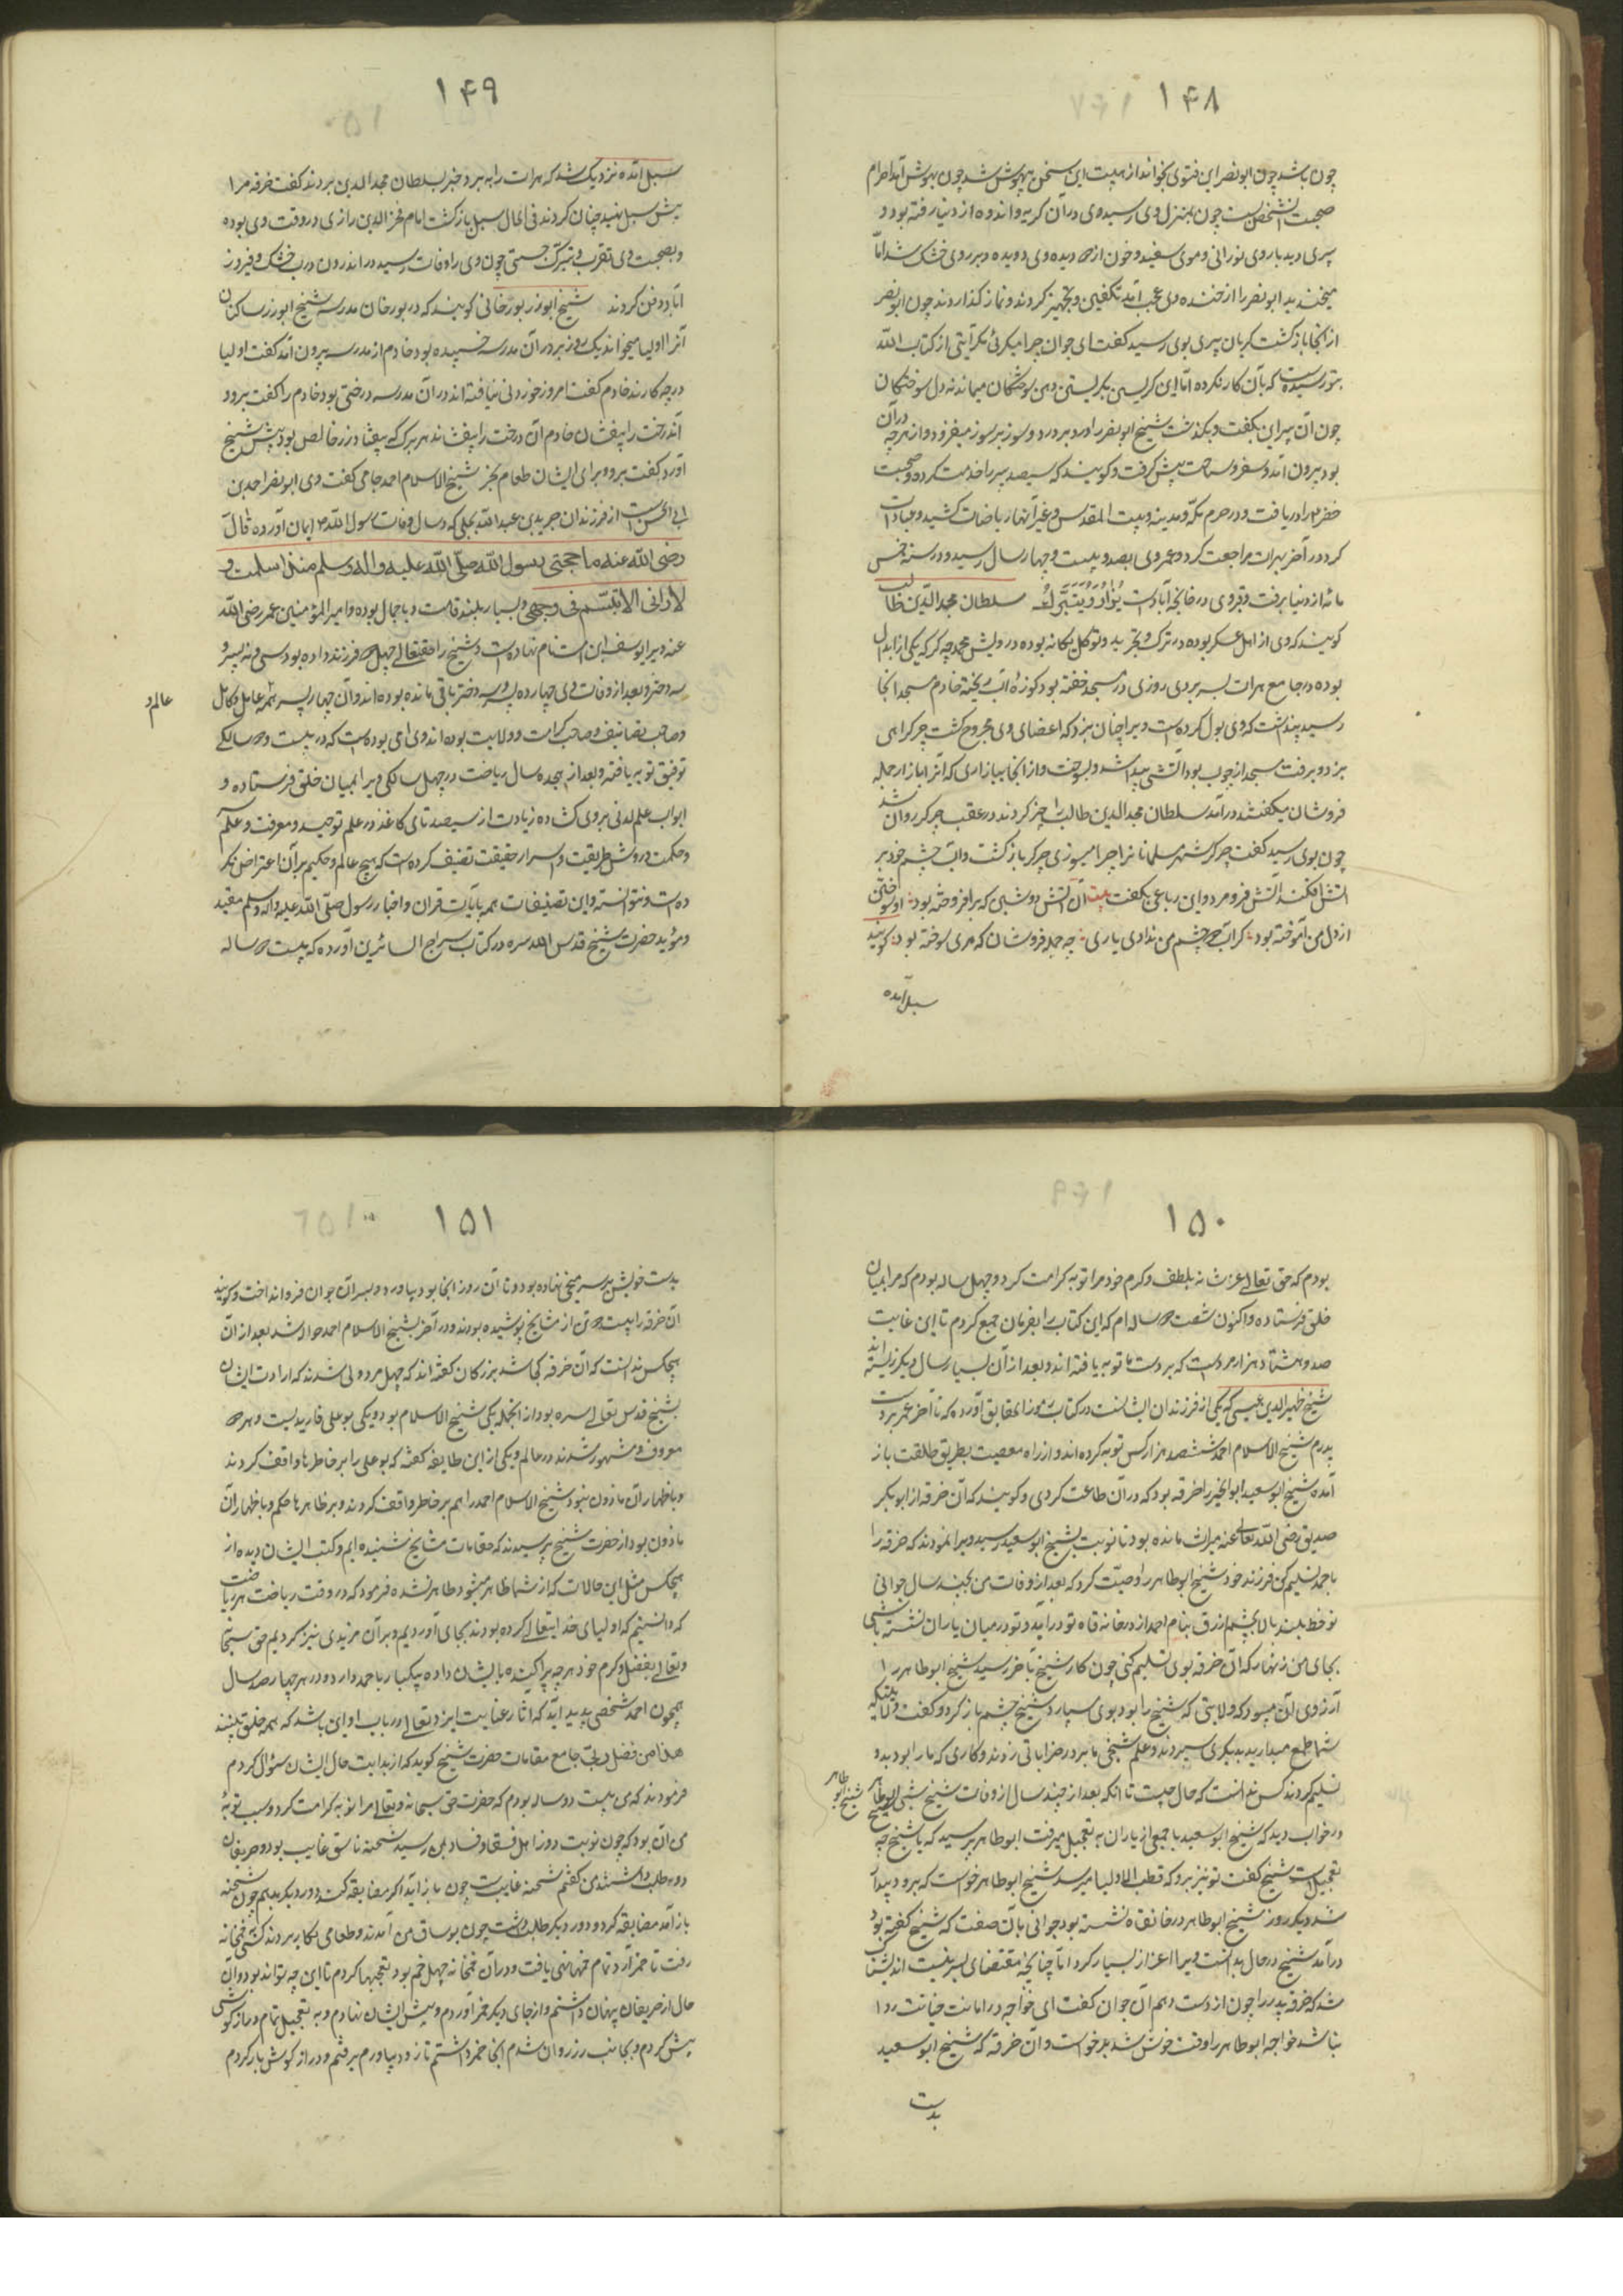 ۱۴۸
چون باشد چون ابونصر این فتوی بخواند از هیبت این سخن بیهوش شد چون بهوش آمد احرام
صحبت آن شخص بست چون بمنزل وی رسید وی در آن گریه و اندوه از دنیا رفته بود و
پیری دید با روی نورانی و موی سفید و خون از دیده وی دویده و بر روی خشک شد امّا
میخندید ابونصر را از خنده وی عجب آمد تکفین و تجهیز کردند و نماز گذاردند چون ابونصر
از آنجا بازگشت گریان پیری بوی رسید گفت ای جوان چرا میگریی مگر آیتی از کتاب الله
بتو رسیده است که بآن کار نکرده امّا این گریستن بگریستن و همن سوختگان میماند نه دل سوختگان
چون آن پیر این بگفت و بگذشت شیخ ابونصر را درد بر درد و سوز بر سوز میفزود و از هر چه در آن
بود بیرون آمد و سفر و سیاحت پیش گرفت و گویند که سیصد پیر را خدمت کرده و صحبت
خضر ع را دریافت و در حرم مکّه و مدینه و بیت المقدس و غیر آنها ریاضات کشید و عبادات
کرد و در آخر بهرات مراجعت کرد و عمر وی بصد و بیست و چهار سال رسید و در سنه خمس
مائه از دنیا برفت و قبر وی در خانچه آباد است یزار و یتبرّک به سلطان مجدالدّین طالب
گویند که وی از اهل عسکر بوده در ترک و تجرید و توکل یگانه بوده درویش محمد چرکر که یکی از ابدال
بوده در جامع هرات بسر بردی روزی در مسجد خفته بود کوزه آب ریخته خادم مسجد آنجا
رسید پنداشت که وی بول کرده است ویرا چنان بزد که اعضای وی مجروح گشت چرکر اهی
بزد و برفت مسجد از چوب بود آتشی پیدا شد و بسوخت و از آنجا ببازاری که آنرا بازار جمله
فروشان میگفتند در آمد سلطان مجد الدین طالب را خبر کردند در عقب چرکر روان شد
چون بوی رسید گفت چرکر شهر مسلمانانرا چرا میسوزی چرکر بازگشت و آب چشم خود بر
آتش افکند آتش فرو مرد و این رباعی بگفت بیت آن آتش دوشین که برافروخته بود او سوختن
از دل من آموخته بود گر آب دو چشم من ندادی یاری چه جمله فروشان که هری سوخته بود گویند
سیل آمده
۱۴۹
سیل آمده نزدیک شد که هرات را ببرد خبر بسلطان مجدالدین بردند گفت خرقه مرا
پیش سیل بنهید چنان کردند فی الحال سیل بازگشت امام فخرالدین رازی در وقت وی بوده
و بصحبت وی تقرب و تبرک جستی چون وی را وفات رسید در اندرون درب خشک و فیروز
آباد دفن کردند شیخ ابوذر بوزجانی گویند که در بوزجان مدرسه شیخ ابوذر ساکنان
آنرا اولیا میخواند یک روز بر در آن مدرسه خسپیده بود خادم از مدرسه بیرون آمد گفت اولیا
در چه کارند خادم گفت امروز خوردنی نیافته اند در آن مدرسه درختی بود خادم را گفت برو و
آندرخت را بیفشان خادم آن درخت را بیفشاند هر برگ که بیفتاد زر خالص بود پیش شیخ
آورد گفت برو و برای ایشان طعام بخر شیخ الاسلام احمد جامی گفت وی ابونصر احمد بن
ابی الحسن است از فرزندان جریر بن عبد الله بجلی که در سال وفات رسول الله ص ایمان آورده قال
رضی الله عنه ما حجبنی رسول الله صلّی الله علیه و اله و سلم منذ اسلمت و
لا رانی الا تبسّم فی وجهی و بسیار بلند قامت و با جمال بوده و امیر المؤمنین عمر رضی الله
عنه ویرا یوسف این امت نام نهاده است و شیخ را حقتعالی چهل و دو فرزند داده بود سی و نه پسر و
سه دختر و بعد از وفات وی چهارده پسر و سه دختر باقی مانده بوده اند و آن چهارده پسر همه عامل و کامل
عالم و
و صاحب تصانیف و صاحب کرامت و ولایت بوده اند و وی امی بوده است که در بیست و دو سالگی
توفیق توبه یافته و بعد از هجده سال ریاضت در چهل سالگی ویرا بمیان خلق فرستاده و
ابواب علم لدنی بر وی گشاده زیادت از سیصد تای کاغذ در علم توحید و معرفت و علم سرّ
و حکمت و روش طریقت و اسرار حقیقت تصنیف کرده است که هیچ عالم و حکیم بر آن اعتراض نکر
ده است و نتوانسته و این تصنیفات همه بآیات قران و اخبار رسول صلّی الله علیه و اله و سلم مقید
و مؤید حضرت شیخ قدس الله سره در کتاب سراج السائرین آورده که بیست و دو ساله
۱۵۰
بودم که حق تعالی عز شانه بلطف و کرم خود مرا توبه کرامت کرد و چهل ساله بودم که مرا بمیان
خلق فرستاده و اکنون شصت و دو ساله ام که این کتاب را بفرمان جمع کردم تا این غایت
صد و هشتاد هزار مرد است که بر دست ما توبه یافته اند و بعد از آن بسیار سال دیگر زیسته اند
شیخ ظهیر الدین عیسی که یکی از فرزندان ایشانست در کتاب رموز الحقایق آورده که تا آخر عمر بر دست
پدرم شیخ الاسلام احمد ششصد هزار کس توبه کرده اند و از راه معصیت بطریق طاعت باز
آمده شیخ ابوسعید ابوالخیر را خرقه بود که در آن طاعت کردی و گویند که آن خرقه از ابوبکر
صدیق رضی الله تعالی عنه میراث مانده بود تا نوبت بشیخ ابوسعید رسید ویرا نمودند که خرقه را
باحمد تسلیم کن فرزند خود شیخ ابوطاهر را وصیّت کرد که بعد از وفات من بچند سال جوانی
نوخط بلند بالا بچشم ازرق بنام احمد از در خانه قاه تو در آید و تو در میان یاران نشسته باشی
بجای من زنهار که آن خرقه بوی تسلیم کنی چون کار شیخ بآخر رسید شیخ ابوطاهر را
آرزوی آن میبود که ولایتی که شیخ را بود بوی سپارد شیخ چشم باز کرد و گفت ولایتیکه
شما طمع میدارید بدیگری سپردند و علم شیخی ما بر در خراباتی زدند و کاری که ما را بود بدو
تسلیم کردند کس ندانست که حال چیست تا آنکه بعد از چند سال از وفات شیخ شبی ابوطاهر
شیخ ابو طاهر
در خواب دید که شیخ ابوسعید با جمعی از یاران به تعجیل میرفت ابوطاهر پرسید که یا شیخ چه
تعجیل است شیخ گفت تو نیز برو که قطب الاولیا میرسد شیخ ابوطاهر خواست که برود بیدار
شد دیگر روز شیخ ابوطاهر در خانقاه نشسته بود جوانی بآن صفت که شیخ گفته بود
درآمد شیخ در حال بدانست ویرا اعزاز بسیار کرد امّا چنانچه مقتضای بشریت است اندیشناک
شد که خرقه پدر را چون از دست دهم آن جوان گفت ای خواجه در امانت خیانت روا
نباشد خواجه ابوطاهر را وقت خوش شد برخواست و آن خرقه که شیخ ابوسعید
بدست
۱۵۱
بدست خویش بر سر میخی نهاده بود و تا آن روز آنجا بود بیاورد و بسر آن جوان فرو انداخت و گویند
آن خرقه را بیست و دو تن از مشایخ پوشیده بودند و در آخر بشیخ الاسلام احمد حواله شد بعد از آن
هیچکس ندانست که آن خرقه کجا شد بزرگان گفته اند که چهل مرد ولی شدند که ارادت ایشان
بشیخ قدس تعالی سره بود از آنجمله یکی شیخ الاسلام بود و یکی بوعلی فارمدیست و هر دو
معروف و مشهور شدند در عالم و یکی از این طایفه گفته که بوعلی را بر خاطرها واقف کردند
و باظهار آن مأذون نبود شیخ الاسلام احمد را هم بر خاطر واقف کردند و بر ظاهرها حکم و باظهار آن
مأذون بود از حضرت شیخ پرسیدند که مقامات مشایخ شنیده ایم و کتب ایشان دیده از
هیچکس مثل این حالات که از شما ظاهر میشود ظاهر نشده فرمود که در وقت ریاضت هر ریاضت
که دانستیم که اولیای خدایتعالی کرده بودند بجای آوردیم و بر آن مزیدی نیز کردیم حق سبحانه
و تعالی بفضل و کرم خود هر چه پراکنده بایشان داده بیکبار باحمد دارد و در هر چهار صد سال
همچون احمد شخصی پدید آید که آثار عنایت ایزد تعالی در باب او این باشد که همه خلق ببینند
هذا من فضل ربّی جامع مقامات حضرت شیخ گوید که از بدایت حال ایشان سؤال کردم
فرمودند که من بیست و دو ساله بودم که حضرت حق سبحانه و تعالی مرا توبه کرامت کرد و سبب توبهٔ
من آن بود که چون نوبت دور اهل فسق و فساد بمن رسید شحنه ناسق غایب بود و حریفان
دور طلب داشتند من گفتم شحنه غایبست چون باز آید اگر مضایقه کند دور دیگر بدهم چون شحنه
باز آمد مضایقه کرد و دور دیگر طلب داشت چون بوساق من آمدند و طعامی بکار بردند کسی بخمخانه
رفت تا خمر آرد تمام خمها تهی یافت و در آن خمخانه چهل خم بود تعجبها کردم تا این چه تواند بود و آن
حال از حریفان پنهان داشتم و از جای دیگر خمر آوردم و پیش ایشان نهادم و به تعجیل تمام دراز گوشی
پیش کردم و بجانب رز روان شدم آنجا خمر داشتم تا زود بیاورم برفتم و دراز گوش بار کردم